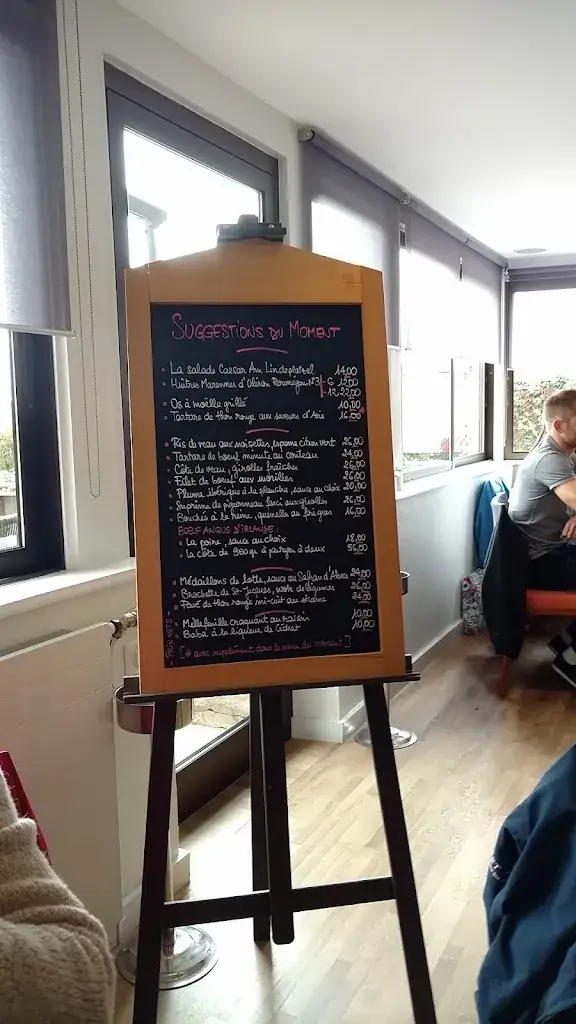 SUGGESTIONS DU MOMENT
La salade Caesar Am Lindeplatzel 14,00
Huîtres Marennes d'Oléron N°3 - 6 12,00
- 12 22,00
Os à moëlle grillé 10,00
Tartare de thon rouge aux saveurs d'Asie 16,00
Ris de veau aux noisettes, citron vert 26,00
Tartare de boeuf minute au couteau 24,00
Côte de veau, girolles fraîches 26,00
Filet de boeuf aux morilles 26,00
Pluma ibérique à la plancha, sauce au choix 20,00
Suprême de pigeonneau farci aux girolles 26,00
Bouchée à la reine, quenelle au foie gras 16,00
BŒUF ANGUS D'IRLANDE :
La poire, sauce au choix 18,00
La côte de 980gr à partager à deux 56,00
Médaillons de lotte, sauce au Safran d'Alsace 24,00
Brochette de St-Jacques, wok de légumes 26,00
Pavé de thon rouge mi-cuit au sésame 24,00
Millefeuille croquant au raisin 10,00
Baba à la liqueur de Cédrat 10,00
[# avec supplément dans le menu du moment]
PRIX NETS